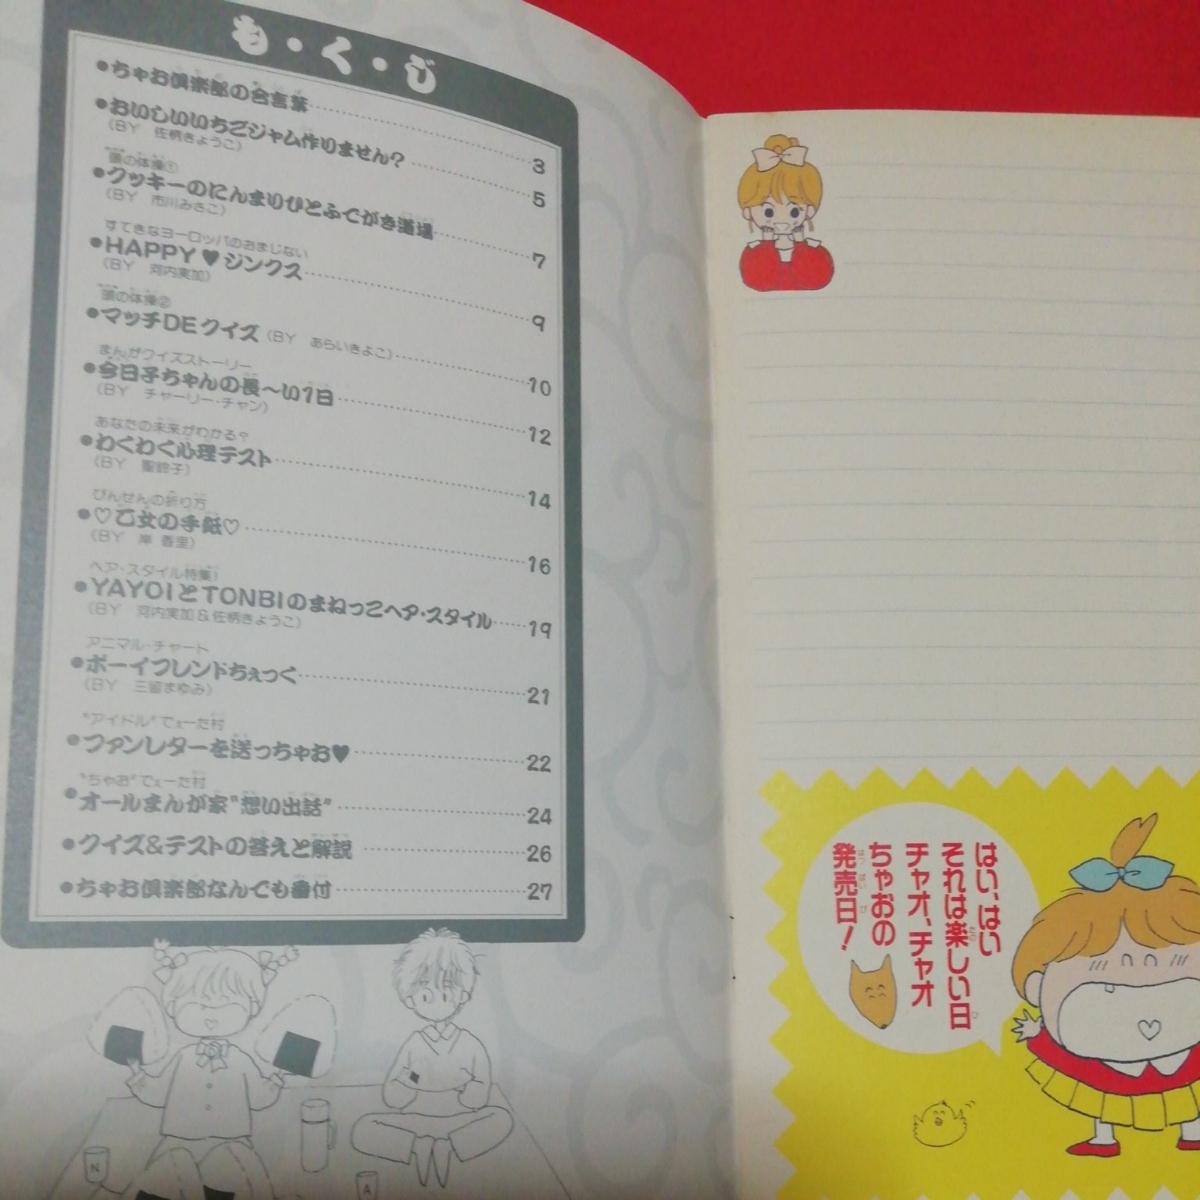 も・く・じ
●ちゃお倶楽部の合言葉 3
●おいしいいちごジャム作りません? 5
(BY 佐柄きょうこ)
頭の体操①
●クッキーのにんまりひとふでがき道場 7
(BY 市川みさこ)
すてきなヨーロッパのおまじない
●HAPPY♥ジンクス 9
(BY 河内実加)
頭の体操②
●マッチDEクイズ(BY あらいきよこ) 10
まんがクイズストーリー
●今日子ちゃんの長〜い1日 12
(BY チャーリー・チャン)
あなたの未来がわかる?
●わくわく心理テスト 14
(BY 聖鈴子)
びんせんの折り方
●♡乙女の手紙♡ 16
(BY 岸 香里)
ヘア・スタイル特集!
●YAYOIとTONBIのまねっこヘア・スタイル 19
(BY 河内実加&佐柄きょうこ)
アニマル・チャート
●ボーイフレンドちぇっく 21
(BY 三留まゆみ)
"アイドル"でぇーた村
●ファンレターを送っちゃお♥ 22
"ちゃお"でぇーた村
●オールまんが家"想い出話" 24
●クイズ&テストの答えと解説 26
●ちゃお倶楽部なんでも番付 27
N
A
はい、はい
それは楽しい日
チャオ、チャオ
ちゃおの
発売日!